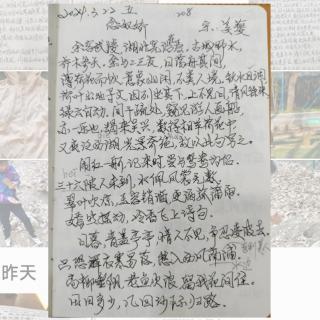 2024.3.22 五
念奴娇 208
宋·姜夔
余客武陵,湖北宪治在焉。古城野水,
乔木参天。余与二三友,日荡舟其间,
薄荷花而饮,意象幽闲,不类人境。秋水且涸,
荷叶出地寻丈,因列坐其下,上不见日,清风徐来,
绿云自动。间于疏处,窥见游人画船,
亦一乐也。朅来吴兴,数得相羊荷花中,
又夜泛西湖,光景奇绝,故以此句写之。
闹红一舸,记来时尝与鸳鸯为侣。
三十六陂人未到,水佩风裳无数。
翠叶吹凉,玉容销酒,更洒菰蒲雨。
嫣然摇动,冷香飞上诗句。
日暮,青盖亭亭,情人不见,争忍凌波去。
只恐舞衣寒易落,愁入西风南浦。
高柳垂阴,老鱼吹浪,留我花间住。
田田多少,几回沙际归路。
昨天